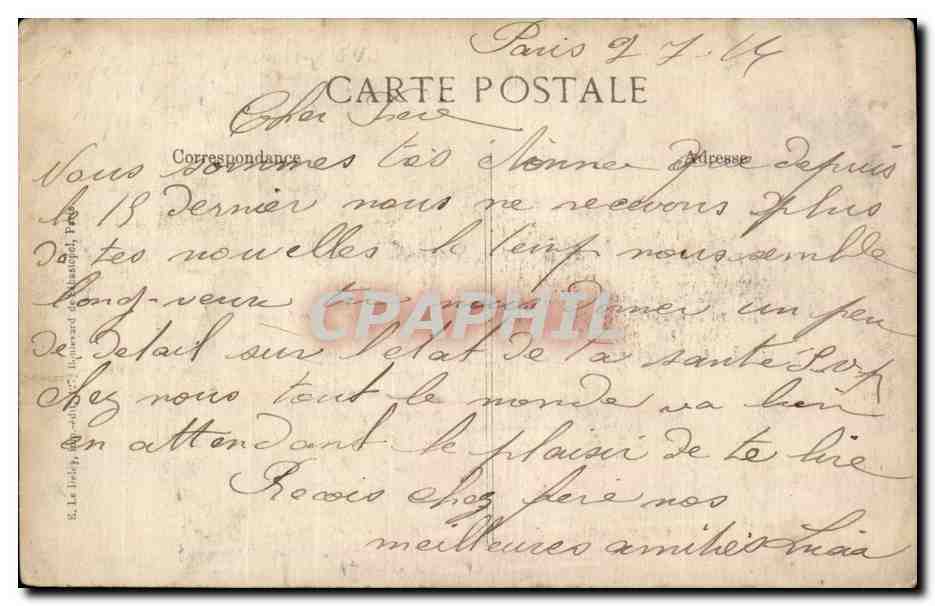 Paris 9 7. 14
CARTE POSTALE
Cher Frere
Correspondance
Adresse
Nous sommes tès étonner que depuis
le 15 dernier nous ne recevons plus
de tes nouvelles le temp nous semble
long-veux tu nous donner un peu
de detail sur l'état de ta santé S.v.p
chez nous tout le monde va bien
en attendant le plaisir de te lire
Recois cher frere nos
meilleures amitiés
E. Le Deley, imp.-édit., 127, Boulevard de Sébastopol, Paris
CPAPHIL